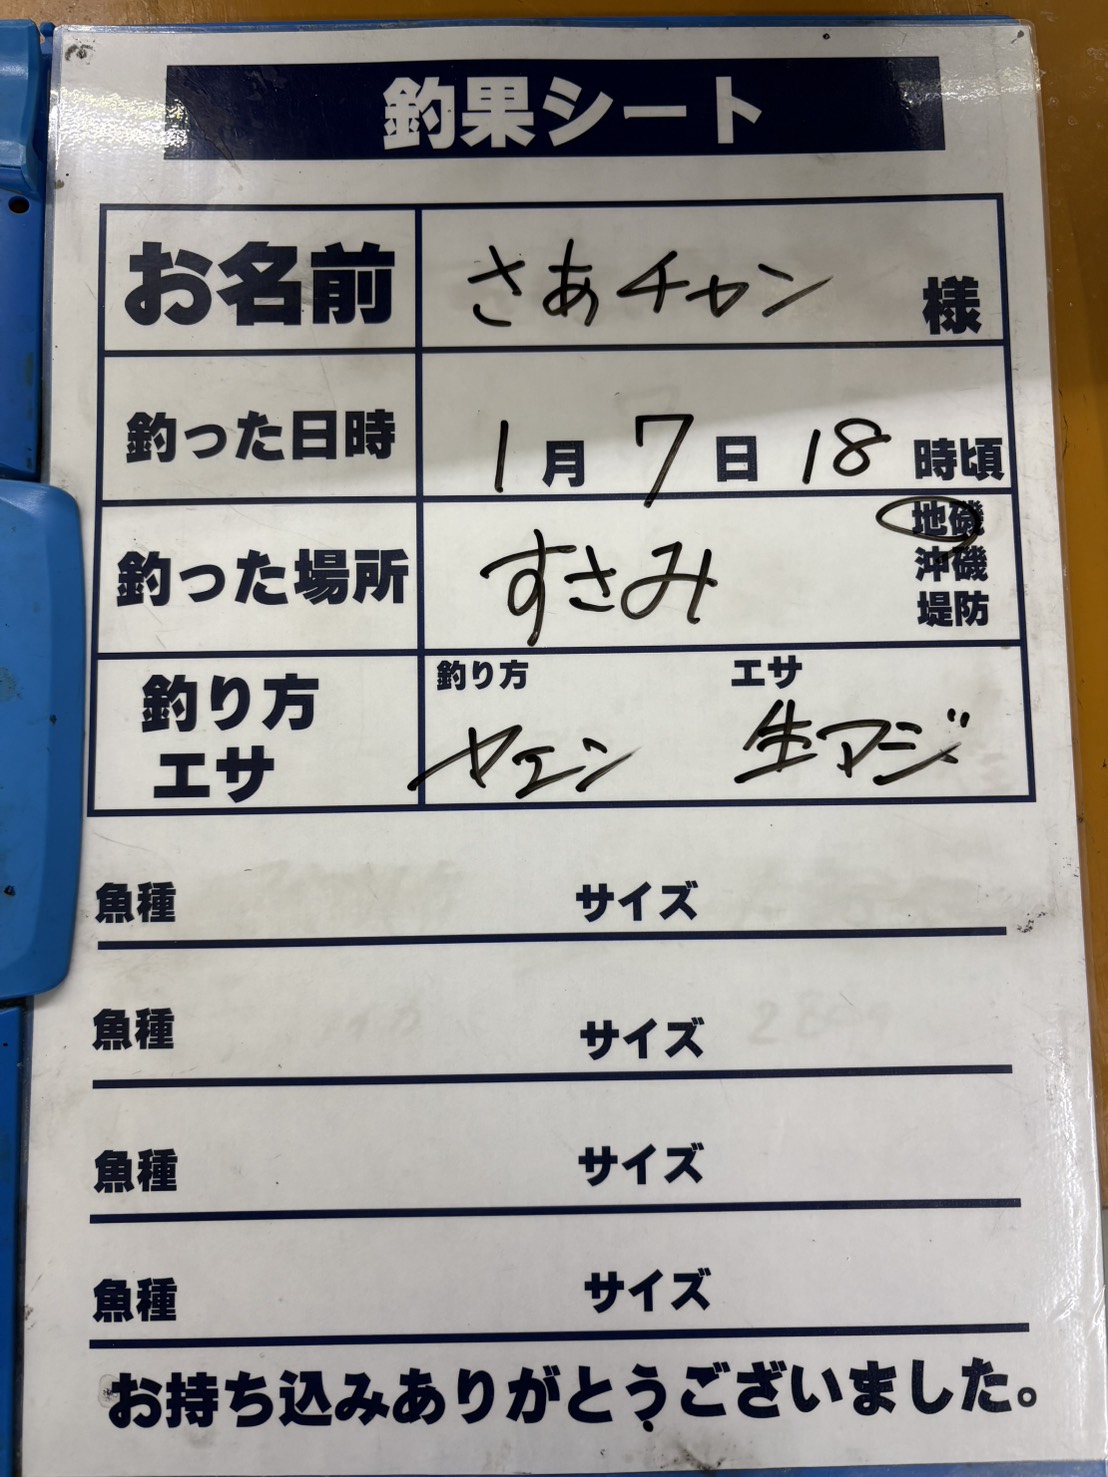 釣果シート
お名前 さあチャン 様
釣った日時 1月7日18時頃
釣った場所 すさみ 地磯
沖磯
堤防
釣り方 エサ
釣り方 ヤエン 生アジ
エサ
魚種 サイズ
魚種 サイズ
魚種 サイズ
魚種 サイズ
お持ち込みありがとうございました。